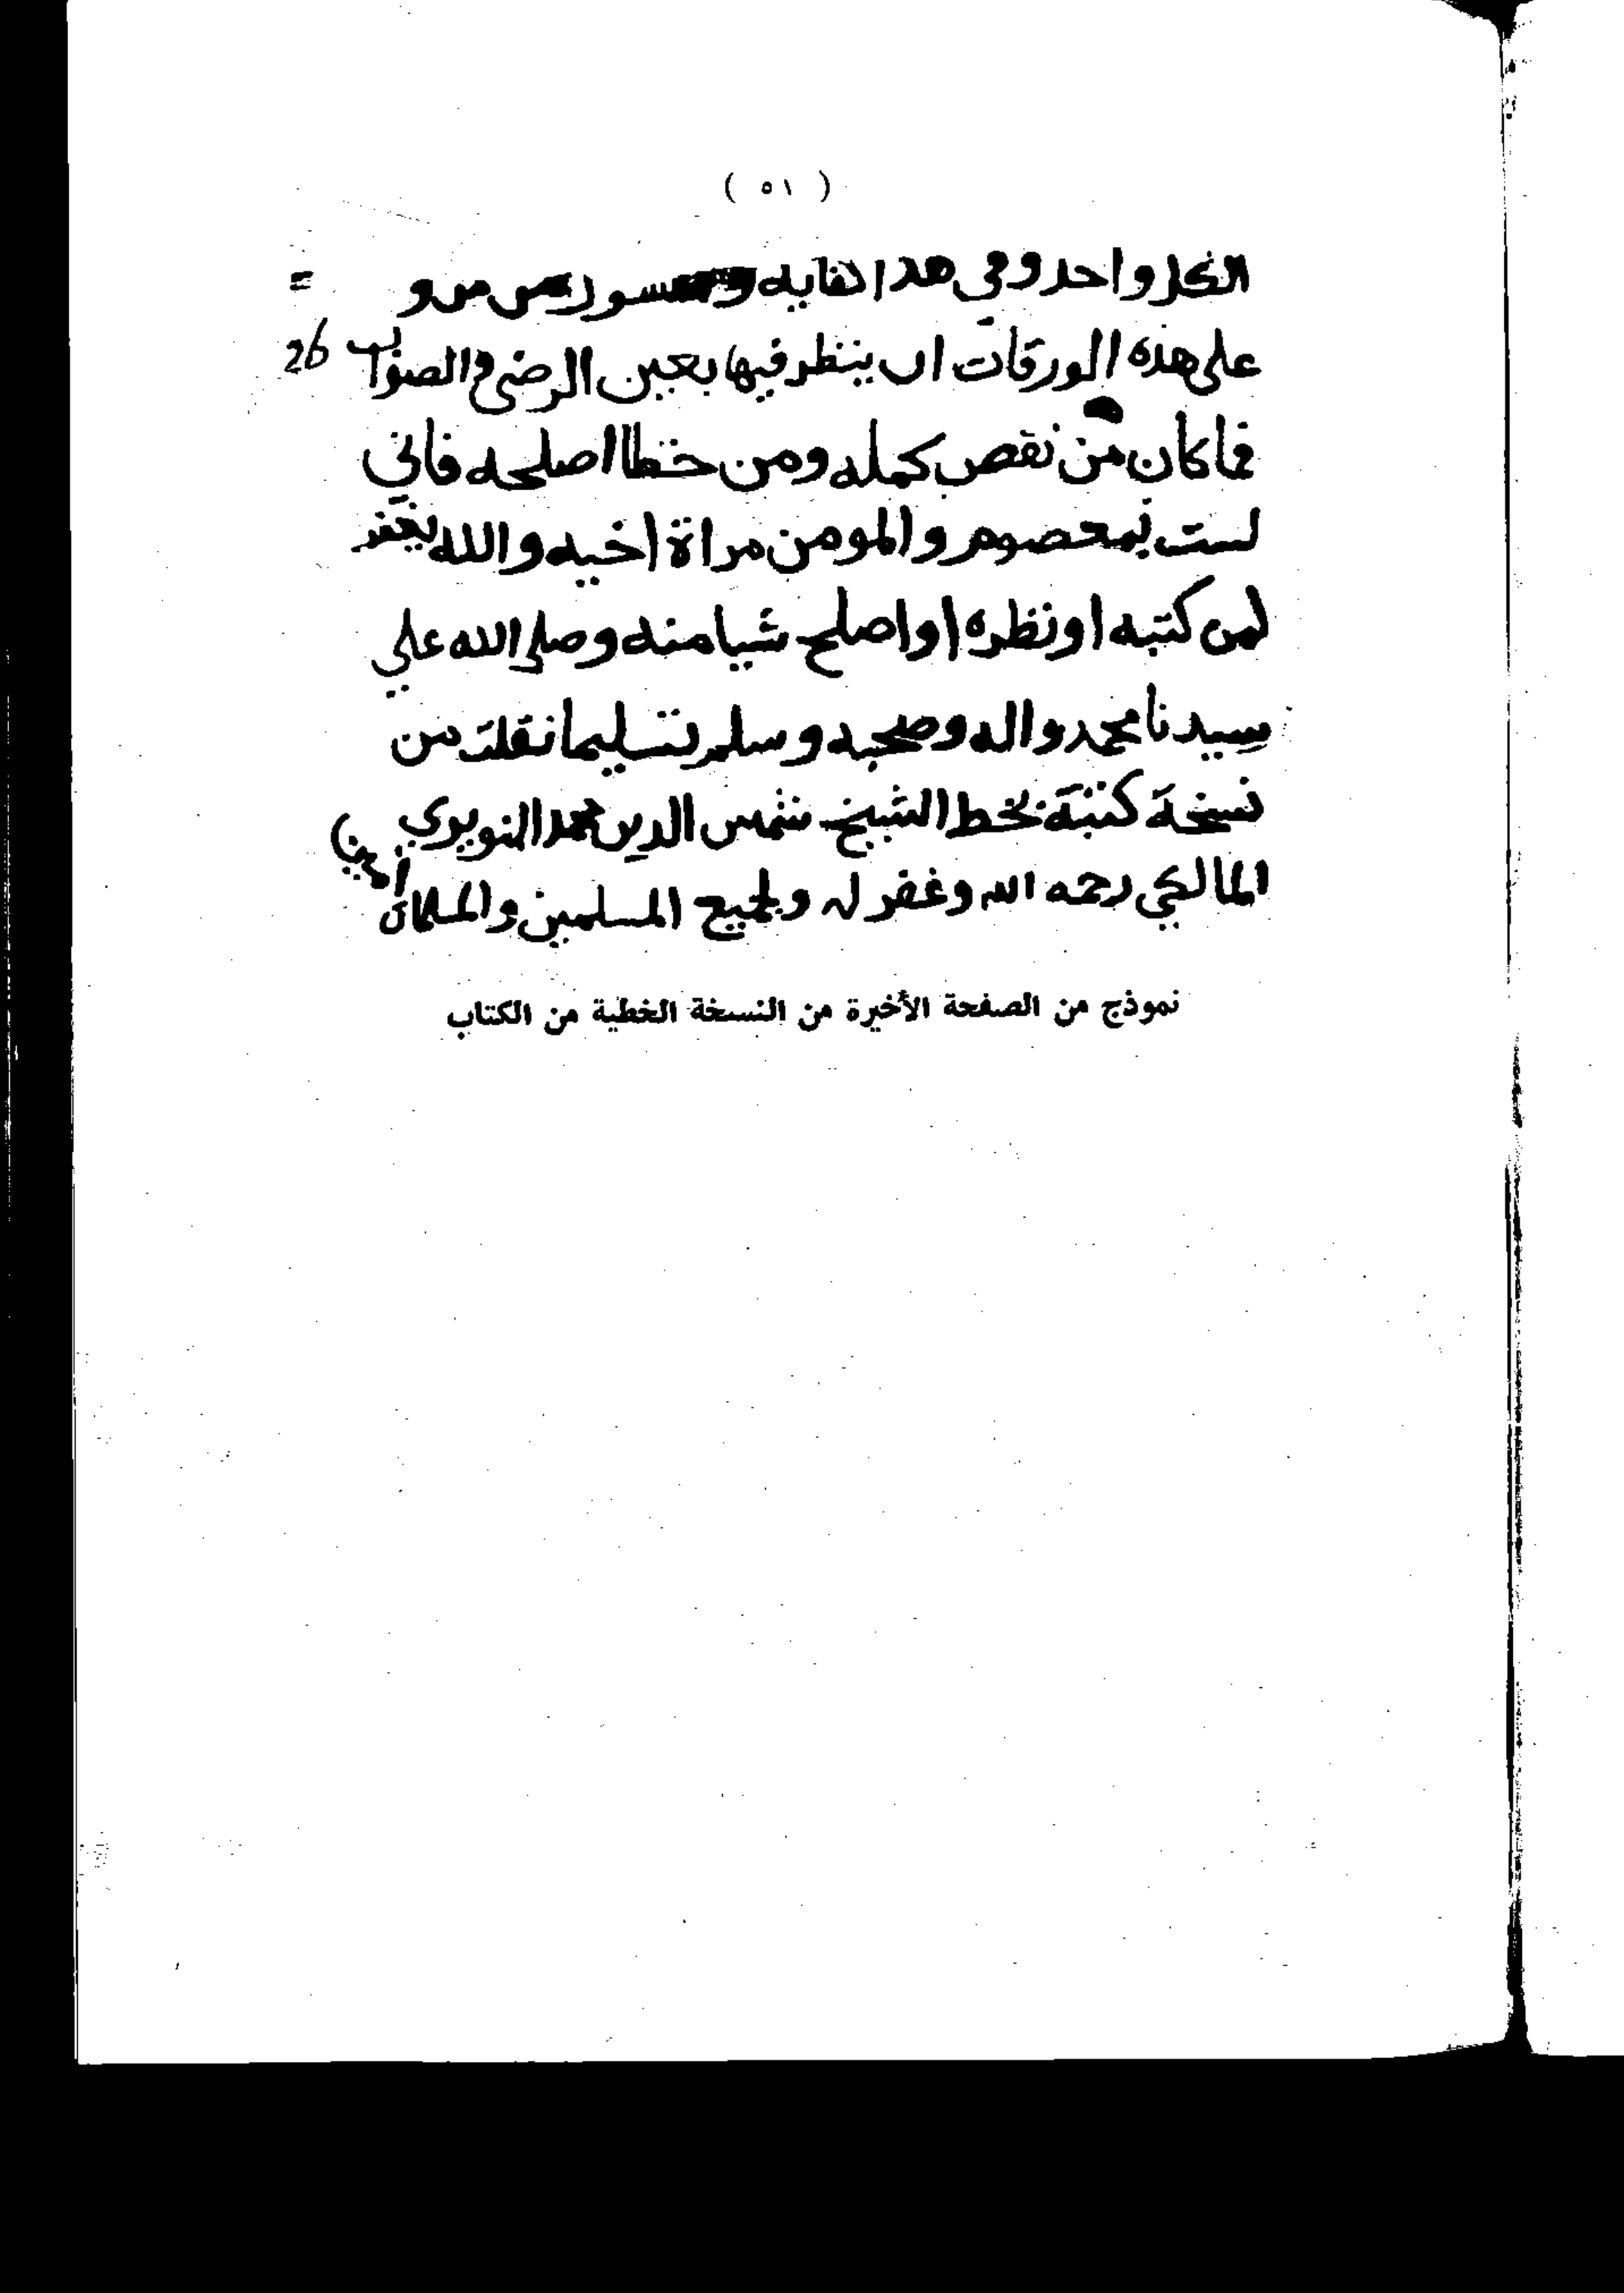 ( ٥١ )
الكل واحد وفي هدا الغايه من و =
على هذه الورقات ان ينظر فيها بعين الرضى والصواب 26
فما كان من نقص كمله ومن خطا اصلحه فاني
لست بمعصوم والمومن مراة اخيه والله يغفر
لمن كتبه او نظره او اصلح شيا منه وصلى الله علي
سيدنا محمد واله وصحبه وسلم تسليما نقلت من
نسخة كتبة بخط الشيخ شمس الدين محمد النويري
المالكي رحمه الله وغفر له ولجميع المسلمين والمسلمات امين
نموذج من الصفحة الأخيرة من النسخة الخطية من الكتاب